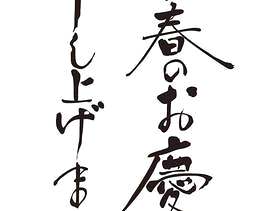 春のお慶
し上げま